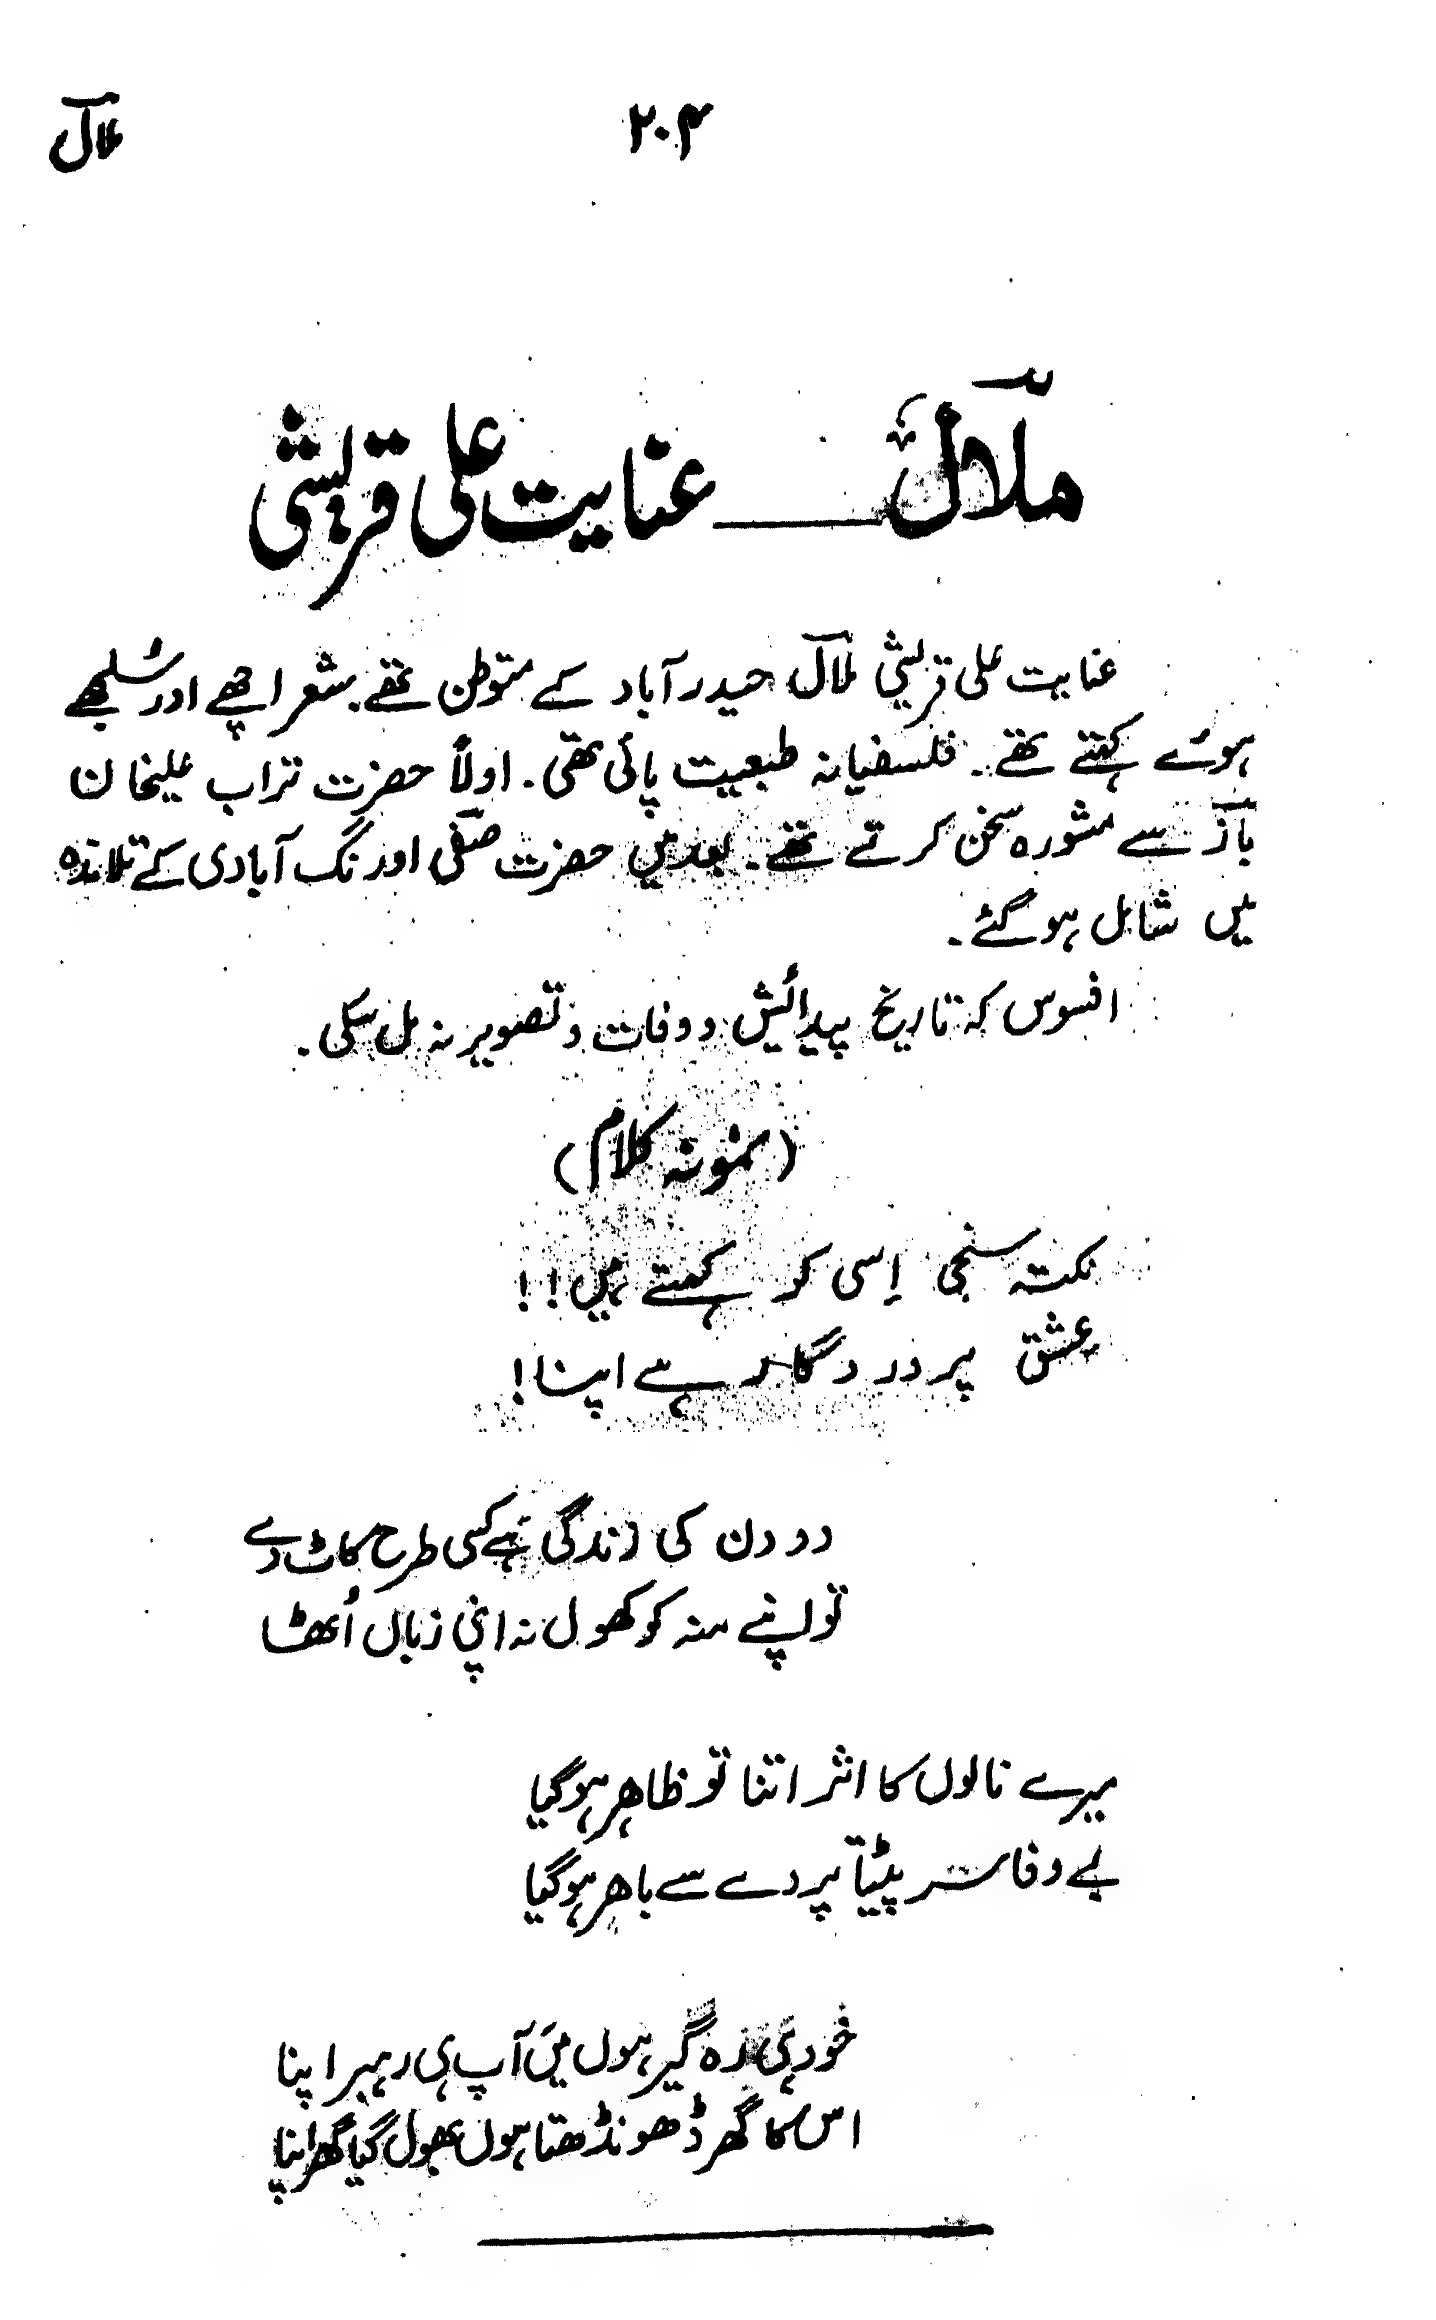 ملال
۲۰۴
ملالؔ ــــــ عنایت علی قریشی
عنایت علی قریشی ملالؔ حیدرآباد کے متوطن تھے۔ شعر اچھے اور سُلجھے
ہوئے کہتے تھے۔ فلسفیانہ طبعیت پائی تھی۔ اولاً حضرت تراب علیخان
بازؔ سے مشورہ سخن کرتے تھے۔ بعد میں حضرت صفیؔ اورنگ آبادی کے تلامذہ
میں شامل ہو گئے۔
افسوس کہ تاریخ پیدائیش و وفات و تصویر نہ مل سکی۔
(نمونہ کلام)
نکتہ سنجی اِسی کو کہتے ہیں!!
عشق پروردگار ہے اپنا!
دو دن کی زندگی ہے کسی طرح کاٹ دے
تو اپنے منہ کو کھول نہ اپنی زباں اُٹھا
میرے نالوں کا اثر اتنا تو ظاہر ہو گیا
بے وفا سر پٹیتا پردے سے باہر ہو گیا
خود ہی رہ گیر ہوں میں آپ ہی رہبر اپنا
اس کا گھر ڈھونڈھتا ہوں بھول گیا گھر اپنا